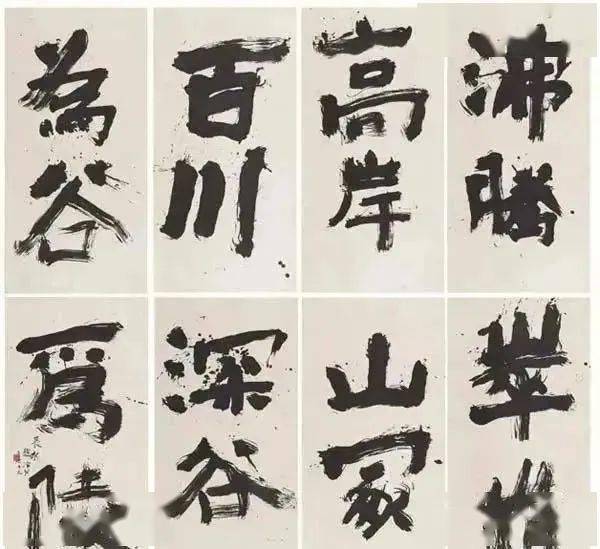 沸騰
高岸
百川
為谷
崒
山冢
深谷
爲